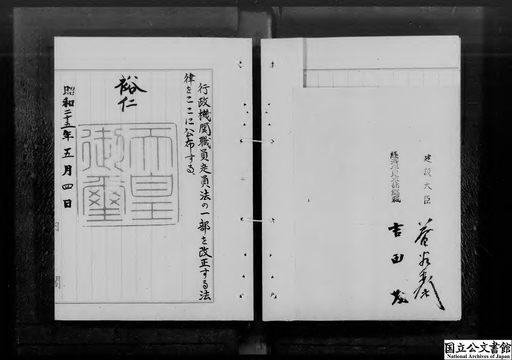 行政機関職員定員法の一部を改正する法
律をここに公布する
裕仁
天皇
御璽
昭和二十五年五月四日
内閣
建設大臣
吉田茂
国立公文書館
National Archives of Japan